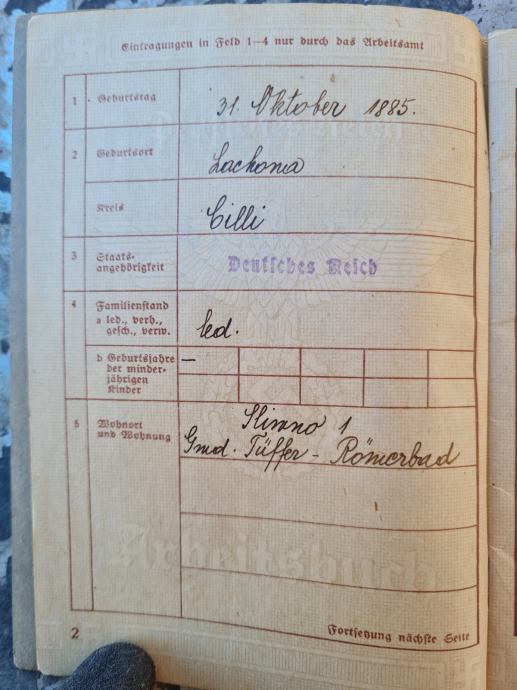 Eintragungen in Feld 1–4 nur durch das Arbeitsamt
1 Geburtstag 31. Oktober 1885.
2 Geburtsort Lachoma
Kreis Cilli
3 Staats-
angehörigkeit Deutsches Reich
4 Familienstand
a led., verh.,
gesch., verw. led.
b Geburtsjahre —
der minder-
jährigen
Kinder
5 Wohnort Slimno 1
und Wohnung Gmd. Tüffer - Römerbad
Arbeitsbuch
2
Fortsetzung nächste Seite